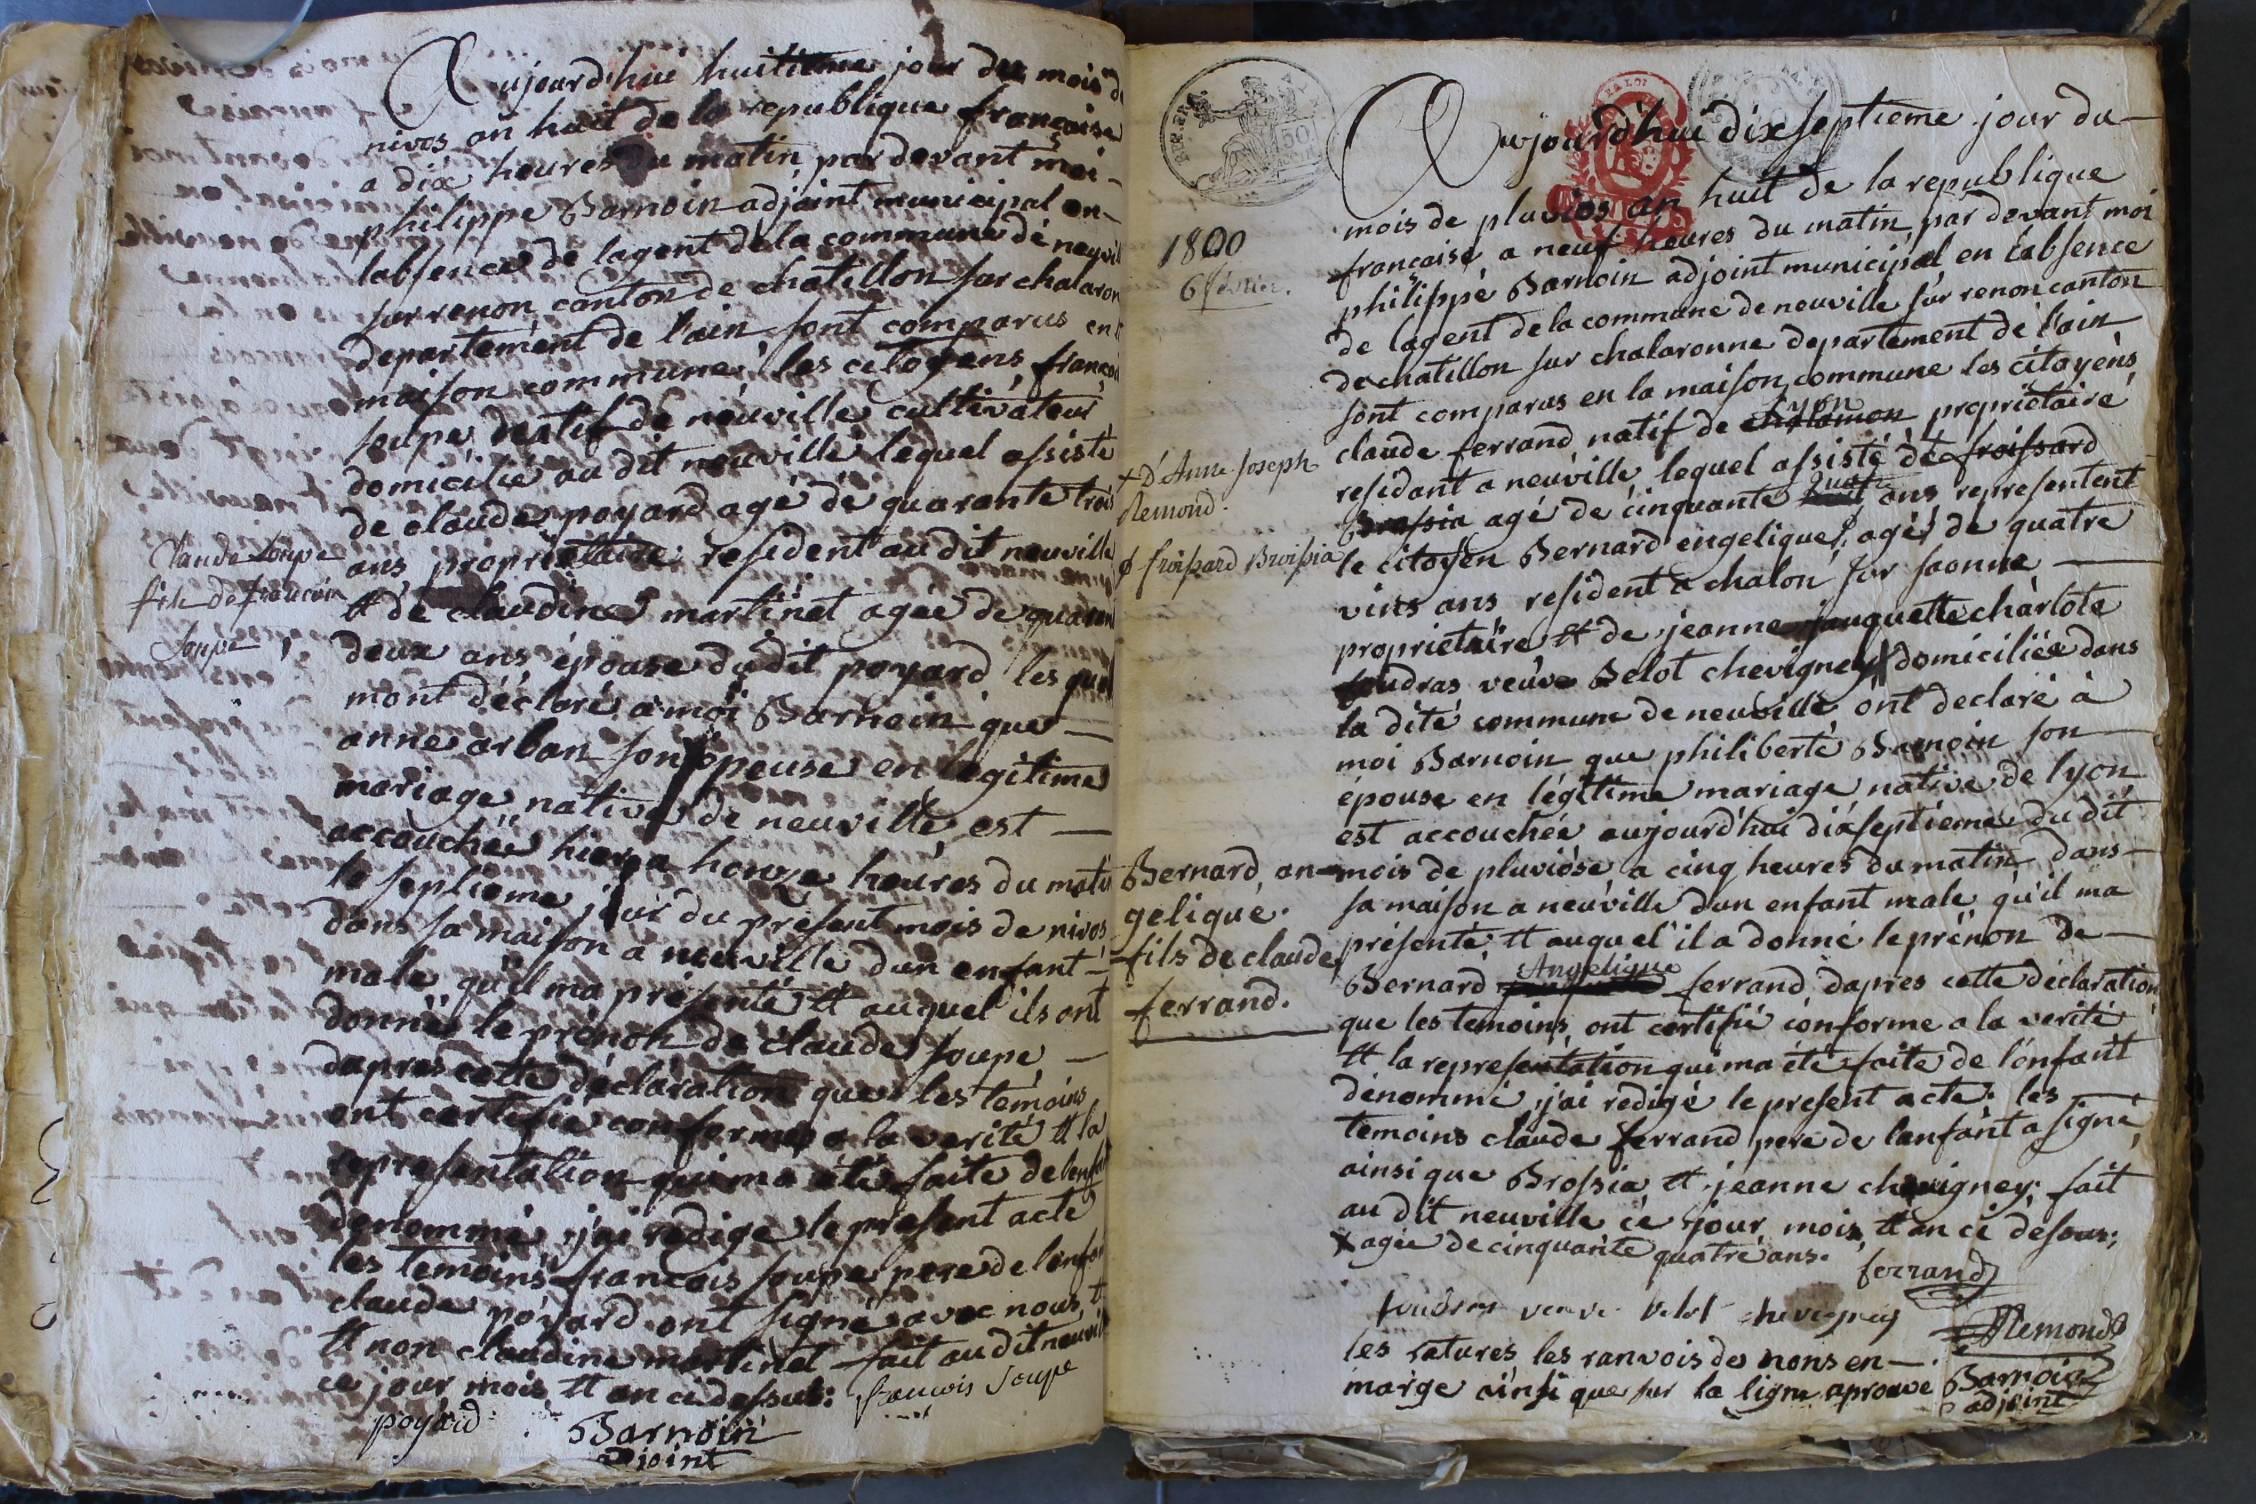 Aujourd'hui huitieme jour du mois de
nivos an huit de la republique française
a dix heures du matin par devant moi
philippe Barnoin adjoint municipal en
labsence de lagent de la commune de neuvil
sur renon canton de chatillon sur chalaron
departement de l'ain sont comparus en
maison commune les citoyens françoi
soupe de neuville cultivateur
domicilié au dit neuville lequel assisté
de claude poyard agé de quarante trois
ans propriétaire resident au dit neuville
et de claudine martinet agée de quaran
deux ans épouse dudit poyard les quel
mont déclaré a moi Barnoin que
anne arban son épouse en legitime
mariage native de neuville est
accouchée hier a honze heures du matin
le septieme jour du présent mois de nivos
dans sa maison a neuville dun enfant
male qu'il ma présenté et auquel ils ont
donné le prénon de claude soupe
dapres cette déclaration que les témoins
ont certifié conforme a la verité et la
representation qui ma été faite de lenfant
denommé j'ai redigé le present acte
les temoins françois soupe pere de lenfan
claude poyard ont signé avec nous
et non claudine martinet fait au dit neuvil
ce jour mois et an ci dessus:
francois Soupe
poyard
Barnoin
adjoint
Claude Soupe
fils de francois
Soupe
REP. FRA.
50
1800
6 février.
+ D'Anne Joseph
Remond.
ϕ froissard Broissia
Bernard an-
gelique.
fils de claude
ferrand.
Aujourd'hui dix septieme jour du
mois de pluvios an huit de la republique
francaise a neuf heures du matin par devant moi
philippe Barnoin adjoint municipal en l'absence
de lagent de la commune de neuville sur renon canton
de chatillon sur chalaronne departement de l'ain
sont comparus en la maison commune les citoyens
lyon
claude ferrand natif de chalamon propriétaire
residant a neuville lequel assisté de froissard
quatre
Brassia agé de cinquante ans representent
le citoyen Bernard engelique ϕ agé de quatre
vins ans resident a chalon sur saonne
proprietaire et de jeanne jauquette charlote
foudras veuve Belot chevigney X domiciliée dans
la dite commune de neuville ont declaré à
moi Barnoin que philiberte Barnoin son
épouse en légitime mariage native de lyon
est accouchée aujourd'hui dixseptieme du dit
mois de pluviose a cinq heures du matin dans
sa maison a neuville dun enfant male qu'il ma
présenté et auquel il a donné le prénon de
Angelique
Bernard ferrand dapres cette déclaration
que les temoins ont certifié conforme a la verité
et la representation qui ma été faite de l'enfant
dénommé j'ai redigé le present acte. les
temoins claude ferrand pere de lenfant a signé
ainsi que Brossia et jeanne chevigney. fait
au dit neuville ce jour mois et an ci dessus;
X agée de cinquante quatre ans.
ferrand
foudras veuve belot chevigney
Remond
les ratures les ranvois de nons en
marge ainsi que sur la ligne aprouvé
Barnoin
adjoint